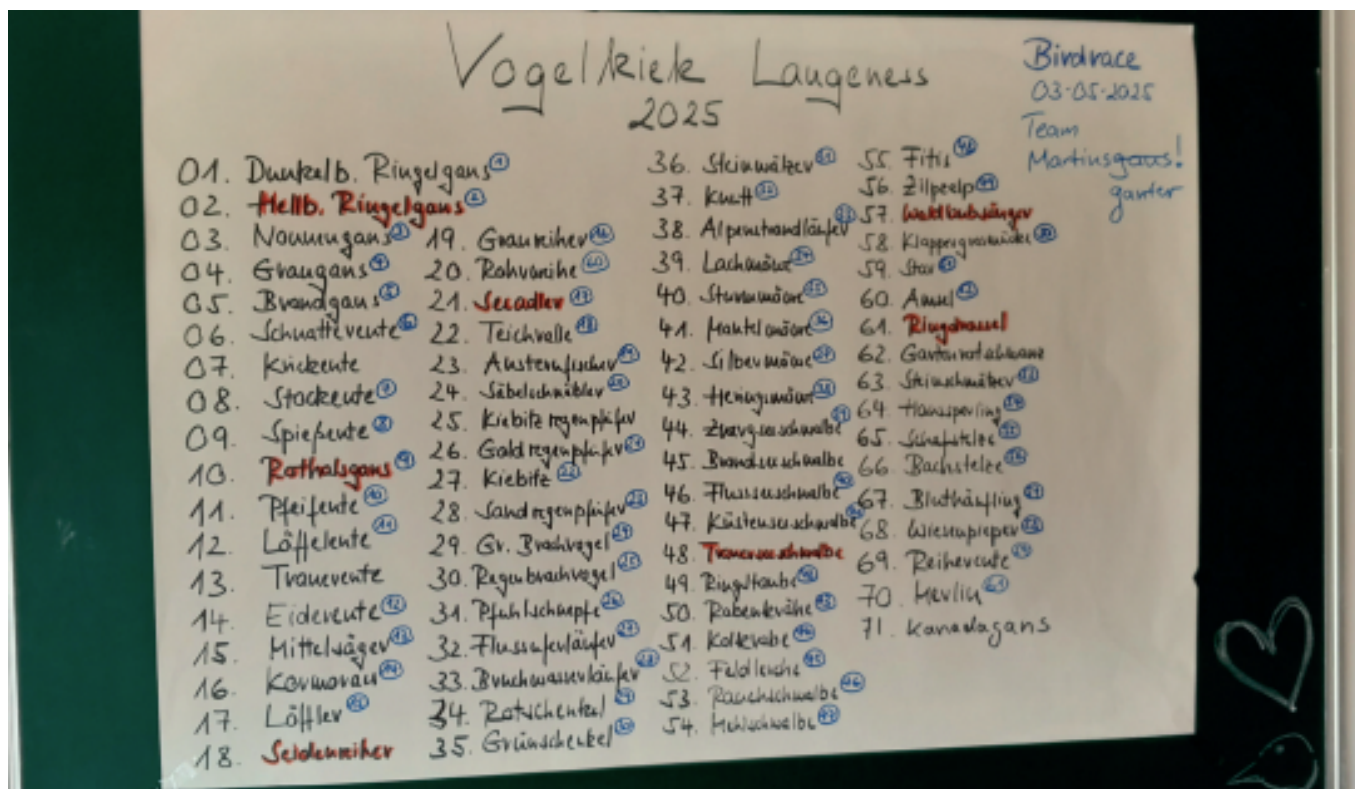 Vogelkiek Langeness
2025
Birdrace
03-05-2025
Team
Martinsgans!
ganter
01. Dunkelb. Ringelgans 1
02. Hellb. Ringelgans 2
03. Nonnengans 3
04. Graugans 4
05. Brandgans 5
06. Schnatterente 6
07. Krickente
08. Stockente 7
09. Spießente 8
10. Rothalsgans 9
11. Pfeifente 10
12. Löffelente 11
13. Trauerente
14. Eiderente 12
15. Mittelsäger 13
16. Kormoran 14
17. Löffler 15
18. Seidenreiher
19. Graureiher 16
20. Rohrweihe 60
21. Seeadler 17
22. Teichralle 18
23. Austernfischer 19
24. Säbelschnäbler 20
25. Kiebitzregenpfeifer
26. Goldregenpfeifer 21
27. Kiebitz 22
28. Sandregenpfeifer 23
29. Gr. Brachvogel 24
30. Regenbrachvogel 25
31. Pfuhlschnepfe 26
32. Flussuferläufer 27
33. Bruchwasserläufer 28
34. Rotschenkel 29
35. Grünschenkel 30
36. Steinwälzer 31
37. Knutt 32
38. Alpenstrandläufer 33
39. Lachmöwe 34
40. Sturmmöwe 35
41. Mantelmöwe 36
42. Silbermöwe 37
43. Heringsmöwe 38
44. Zwergseeschwalbe 39
45. Brandseeschwalbe
46. Flussseeschwalbe 40
47. Küstenseeschwalbe 41
48. Trauerseeschwalbe
49. Ringeltaube 42
50. Rabenkrähe 43
51. Kolkrabe 44
52. Feldlerche 45
53. Rauchschwalbe 46
54. Mehlschwalbe 47
55. Fitis 48
56. Zilpzalp 49
57. Waldlaubsänger
58. Klappergrasmücke 50
59. Star 51
60. Amsel 52
61. Ringdrossel
62. Gartenrotschwanz
63. Steinschmätzer 53
64. Haussperling 54
65. Schafstelze 55
66. Bachstelze 56
67. Bluthänfling 57
68. Wiesenpieper 58
69. Reiherente 59
70. Merlin 61
71. Kanadagans